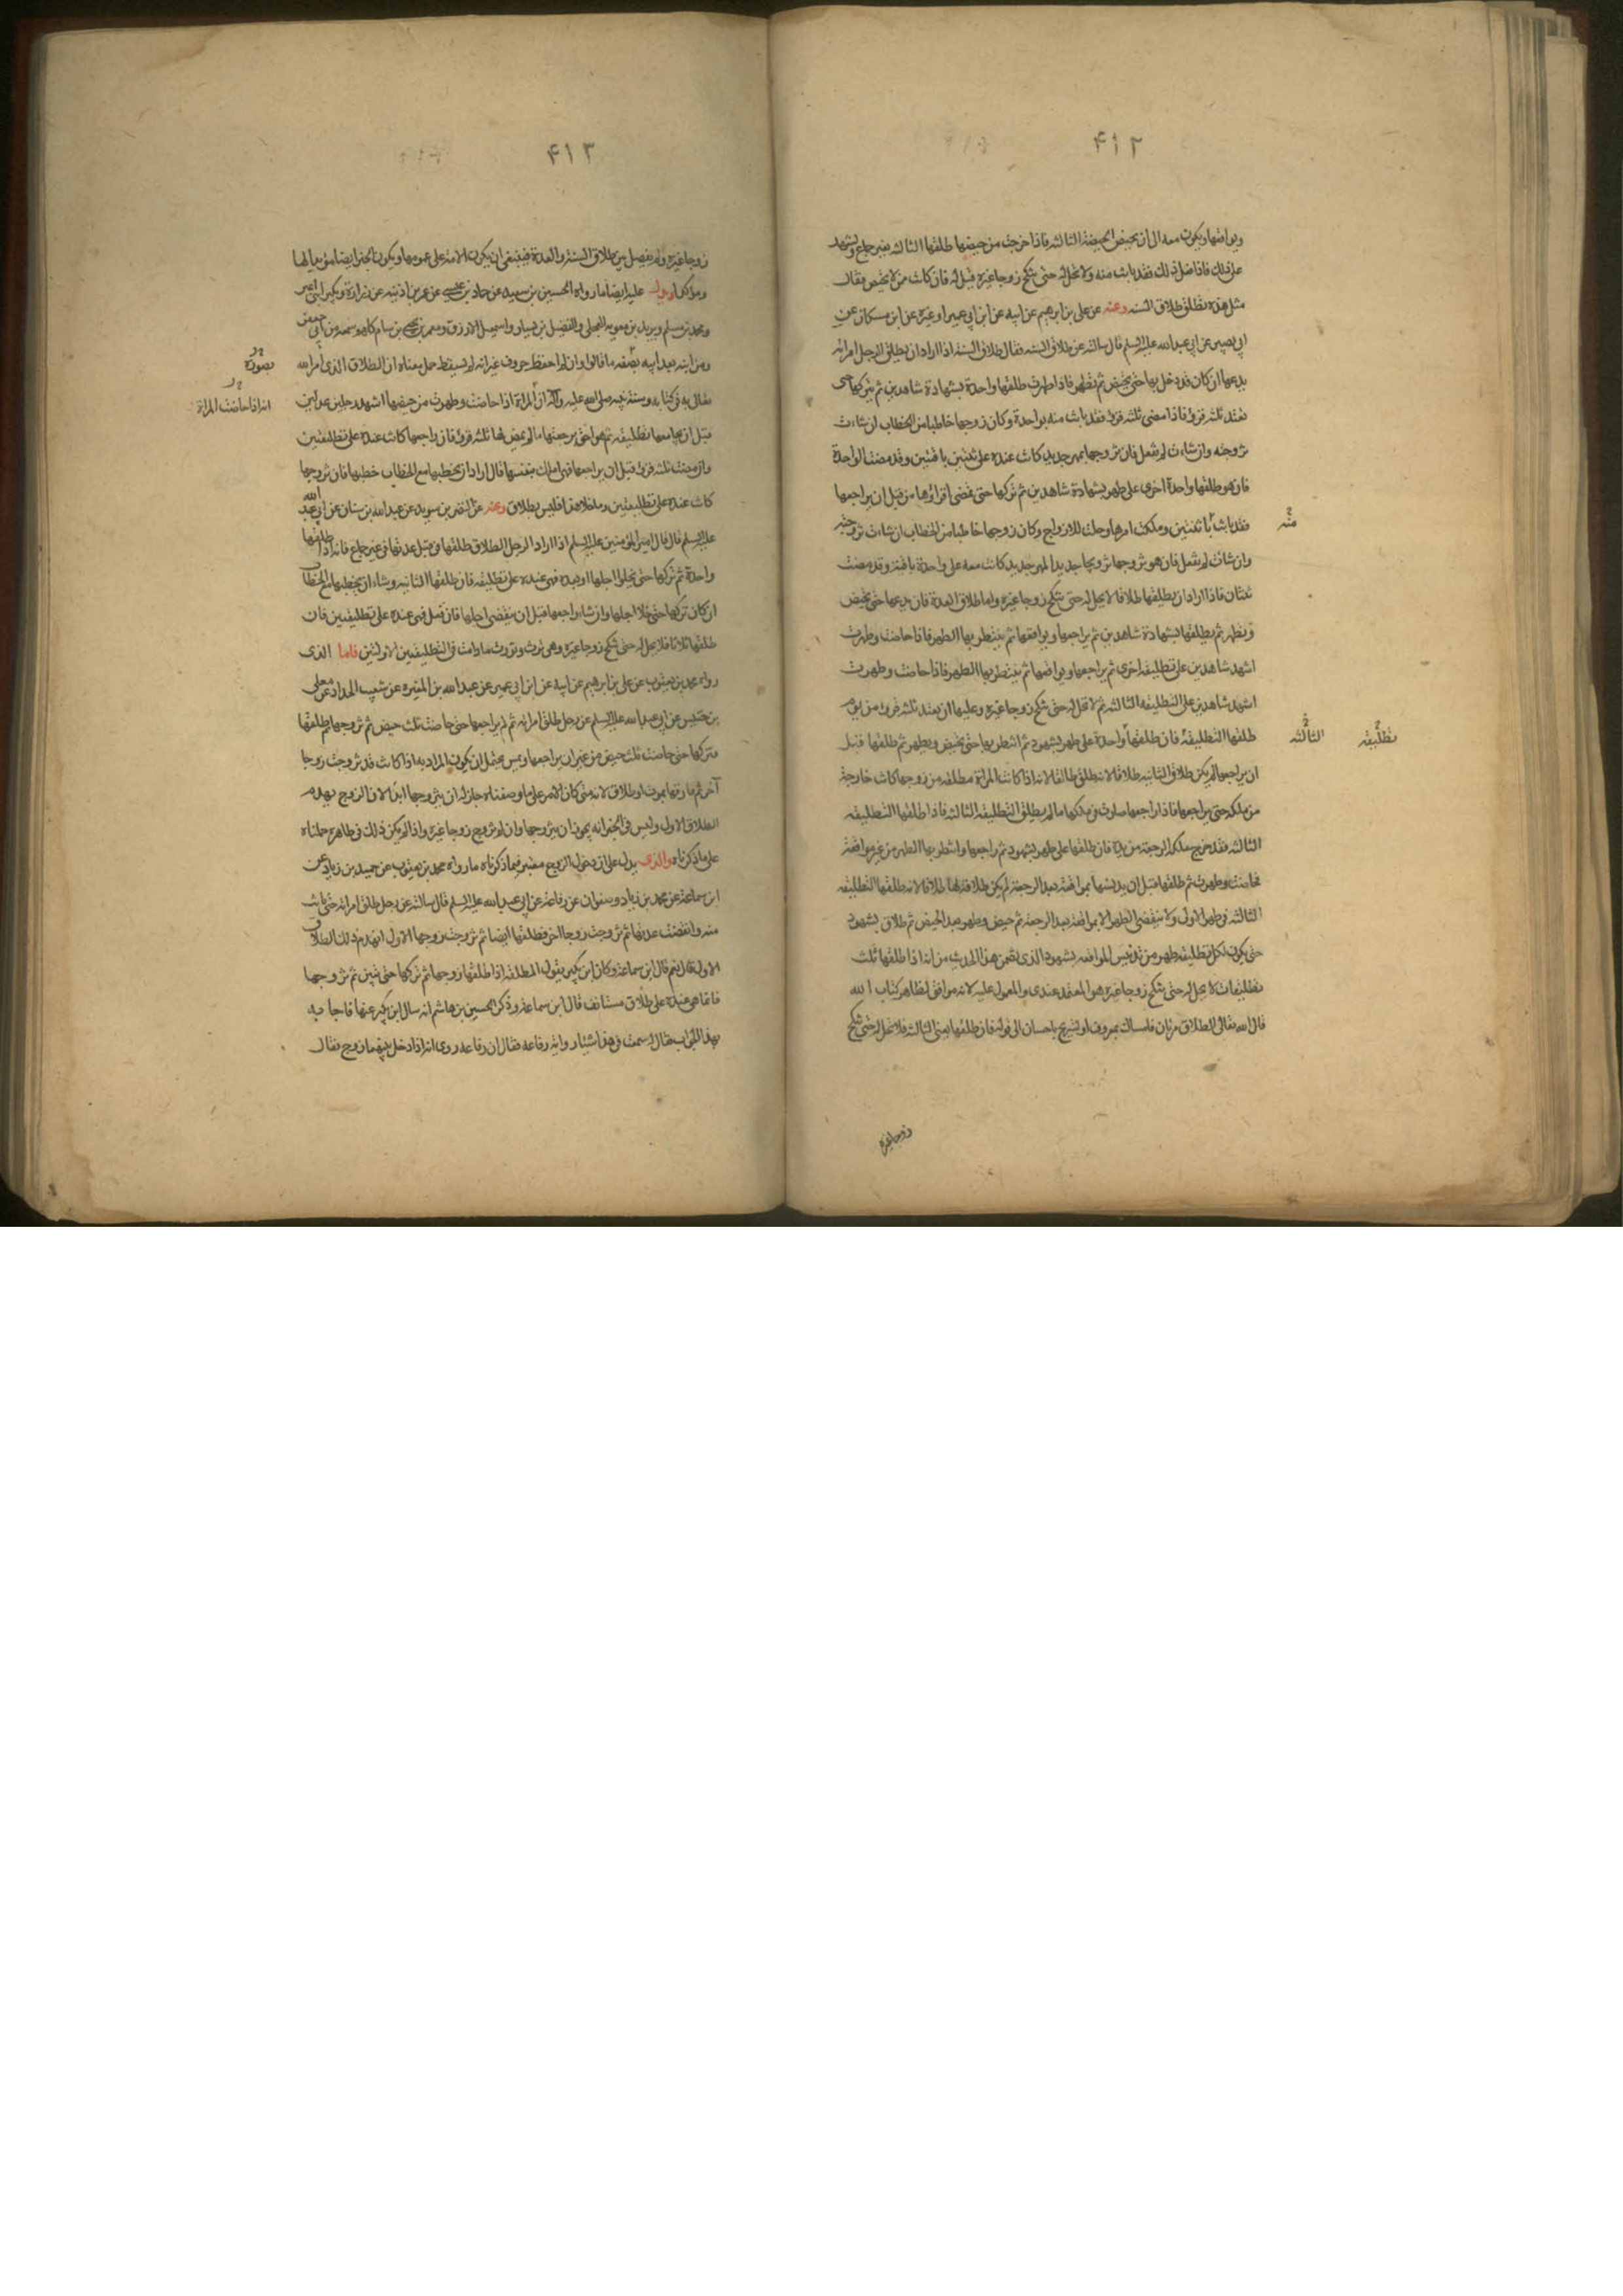 ۴۱۲
ويواقعها ويكون معه الى ان تحيض الحيضة الثالثه فاذا خرجت من حيضتها طلقها الثالثه بغير جماع ويشهد
على ذلك فاذا فعل ذلك فقد بانت منه ولا تحل له حتى تنكح زوجا غيره قيل له فان كانت من لا تحيض فقال
مثل هذه تطلق طلاق السنه وعنه عن على بن ابرهيم عن ابيه عن ابن ابي عمير او غيره عن ابن مسكان عن
ابي بصير عن ابي عبد الله عليه السلم قال سالته عن طلاق السنه فقال طلاق السنة اذا اراد ان يطلق الرجل امراته
يدعها ان كان قد دخل بها حتى تحيض ثم تطهر فاذا طهرت طلقها واحدة بشهادة شاهدين ثم يتركها حتى
تعتد ثلثه قروء فاذا مضى ثلثه قروء فقد بانت منه بواحدة وكان زوجها خاطبا من الخطاب ان شاءت
تزوجته وان شاءت لم تفعل فان تزوجها بمهر جديد كانت عنده على ثنتين باقيتين وقد مضت الواحدة
فان هو طلقها واحدة اخرى على طهر بشهادة شاهدين ثم تركها حتى تمضى اقراؤها من قبل ان يراجعها
فقد بانت باثنتين وملكت امرها وحلت للازواج وكان زوجها خاطبا من الخطاب ان شاءت تزوجته
منه
وان شائت لم تفعل فان هو تزوجها تزويجا جديدا بمهر جديد كانت معه على واحدة باقية وقد مضت
ثنتان فاذا اراد ان يطلقها طلاقا لا يحل له حتى تنكح زوجا غيره واما طلاق العدة فان يدعها حتى تحيض
وتطهر ثم يطلقها بشهادة شاهدين ثم يراجعها ويواقعها ثم ينتظر بها الطهر فاذا حاضت وطهرت
اشهد شاهدين على تطليقه اخرى ثم يراجعها ويواقعها ثم ينتظر بها الطهر فاذا حاضت وطهرت
اشهد شاهدين على التطليقه الثالثه ثم لا تحل له حتى تنكح زوجا غيره وعليها ان تعتد ثلثه قروء من يوم
طلقها التطليقة فان طلقها واحدة على طهر بشهود ثم انتظر بها حتى تحيض وتطهر ثم طلقها قبل
الثالثه
تطليقه
ان يراجعها لم يكن طلاق الثانيه طلاقا لانه طلق طالقا لانه اذا كانت المراة مطلقه من زوجها كانت خارجة
من ملكه حتى يراجعها فاذا راجعها صارت في ملكه ما لم يطلق التطليقة الثالثه فاذا طلقها التطليقه
الثالثه فقد خرج ملك الرجعة من يده فان طلقها على طهر بشهود ثم راجعها وانتظر بها الطهر من غير مواقعة
فحاضت وطهرت ثم طلقها قبل ان يدنسها بمواقعة بعد الرجعة لم يكن طلاقه لها طلاقا لانه طلقها التطليقه
الثالثه في طهر الاولى ولا ينقضي الطهر الا بمواقعة بعد الرجعة ثم حيض وطهر بعد الحيض ثم طلاق بشهود
حتى يكون لكل تطليقه طهر من تدنيس المواقعه بشهود الذى تضمن هذا الحديث من انه اذا طلقها ثلث
تطليقات لا يحل له حتى تنكح زوجا غيره هو المعتمد عندى والمعول عليه لانه موافق لظاهر كتاب الله
قال الله تعالى الطلاق مرتان فامساك بمعروف او تسريح باحسان الى قوله فان طلقها يعنى الثالثه فلا تحل له حتى تنكح
زوجا غيره
۴۱۳
زوجا غيره ولم يفصل بين طلاق السنة والعدة فينبغي ان يكون الامة على عمومها ويكون الخبر ايضا موافيا لها
وموكدا ويدل عليه ايضا ما رواه الحسين بن سعيد عن حماد بن عيسى عن عمر بن اذينه عن زرارة وبكير ابنى اعين
ومحمد بن مسلم وبريد بن معويه العجلى والفضيل بن يسار واسمعيل الازرق ومعمر بن يحيى بن سام كلهم سمعه من ابي جعفر
ومن ابنه بعد ابيه بصفه ما قالوا وان لم احفظ حروفه غير انه لم يسقط جمل معناه ان الطلاق الذى امر الله
بصورة
تعالى به في كتابه وسنه نبيه صلى الله عليه وآله ان المراة اذا حاضت وطهرت من حيضها اشهد رجلين عدلين
انه اذا حاضت المراة
قبل ان يجامعها تطليقه ثم هو احق برجعتها ما لم يمض لها ثلثه قروء فان راجعها كانت عنده على تطليقتين
وان مضت ثلثه قروء قبل ان يراجعها فهي املك بنفسها فان اراد ان يخطبها مع الخطاب خطبها فان تزوجها
كانت عنده على تطليقتين وما خلا هذا فليس بطلاق وعنه عن النضر بن سويد عن عبد الله بن سنان عن ابي عبد الله
عليه السلم قال قال امير المؤمنين عليه السلم اذا اراد الرجل الطلاق طلقها في قبل عدتها في غير جماع فانه اذا طلقها
واحدة ثم تركها حتى يخلوا اجلها او بعده فهي عنده على تطليقه فان طلقها الثانيه وشاء ان يخطبها مع الخطاب
ان كان تركها حتى خلا اجلها وان شاء راجعها قبل ان ينقضى اجلها فان فعل فهي عنده على تطليقتين فان
طلقها ثلاثا فلا يحل له حتى تنكح زوجا غيره وهي ترث وتورث ما دامت في التطليقتين الاولتين فاما الذى
رواه محمد بن يعقوب عن على بن ابرهيم عن ابيه عن ابن ابي عمير عن عبد الله بن المغيره عن شعيب الحداد عن معلى
بن خنيس عن ابي عبد الله عليه السلم عن رجل طلق امراته ثم لم يراجعها حتى حاضت ثلث حيض ثم تزوجها ثم طلقها
فتركها حتى حاضت ثلث حيض من غير ان يراجعها ويمس يحتمل ان يكون المراد به اذا كانت قد تزوجت زوجا
آخر ثم فارقها بموت او طلاق لانه متى كان الامر على ما وصفناه جاز له ان يتزوجها ابدا لان الزوج يهدم
الطلاق الاول وليس في الخبر انه يجوز ان يتزوجها وان لم تتزوج زوجا غيره واذا لم يكن ذلك في ظاهره حملناه
على ما ذكرناه والذى يدل على ان دخول الزوج معتبر فيما ذكرناه ما رواه محمد بن يعقوب عن حميد بن زياد عن
ابن سماعة عن محمد بن زياد وصفوان عن رفاعة عن ابي عبد الله عليه السلم قال سالته عن رجل طلق امراته حتى بانت
منه وانقضت عدتها ثم تزوجت زوجا اخر فطلقها ايضا ثم تزوجت زوجها الاول ايهدم ذلك الطلاق
الاول قال نعم قال ابن سماعة وكان ابن بكير يقول المطلقه اذا طلقها زوجها ثم تركها حتى تبين ثم تزوجها
فانما هي عنده على طلاق مستانف قال ابن سماعة وذكر الحسين بن هاشم انه سال ابن بكير عنها فاجابه
بهذا الجواب فقال له سمعت في هذا شيئا رواية رفاعه فقال ان رفاعه روى انه اذا دخل بينهما زوج فقال